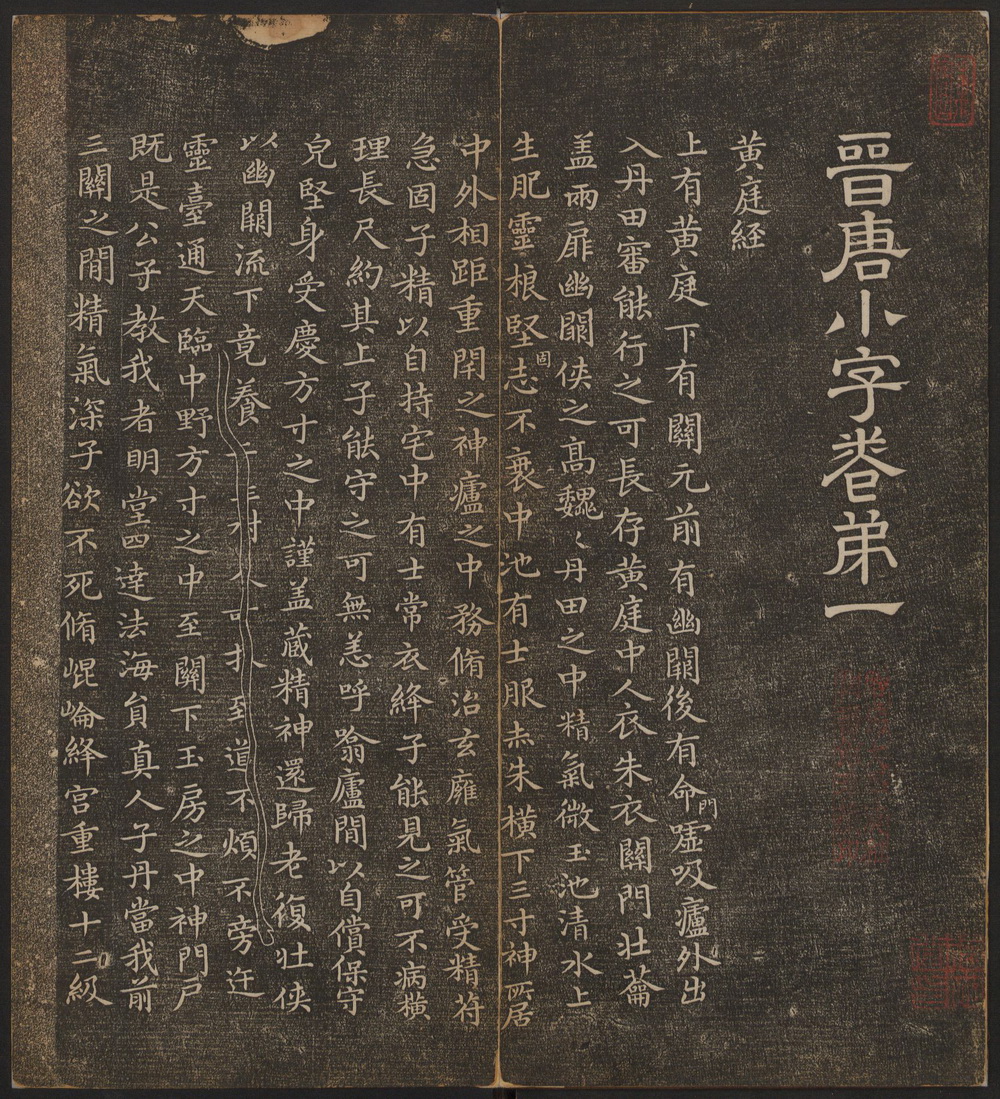 晉唐小字卷弟一
黄庭経
上有黄庭下有關元前有幽闕後有命門嘘吸廬外出
入丹田審能行之可長存黄庭中人衣朱衣關門壯蘥
盖兩扉幽闕俠之髙魏〻丹田之中精氣微玉池清水上
生肥靈根堅固志不衰中池有士服赤朱横下三寸神所居
中外相距重閇之神廬之中務脩治玄廱氣管受精符
急固子精以自持宅中有士常衣絳子能見之可不病横
理長尺約其上子能守之可無恙呼翕廬間以自償保守
皃堅身受慶方寸之中謹盖藏精神還歸老復壮俠
以幽闕流下竟養至道不煩不旁迕
靈臺通天臨中野方寸之中至關下玉房之中神門户
既是公子教我者明堂四達法海負真人子丹當我前
三關之間精氣深子欲不死脩崐崘絳宫重樓十二級